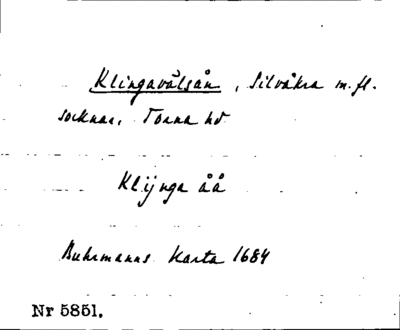 Klingavälsån, Silvåkra m. fl.
socknar, Torna hd
Klijnga åå
Buhrmanns Karta 1684
Nr 5851.